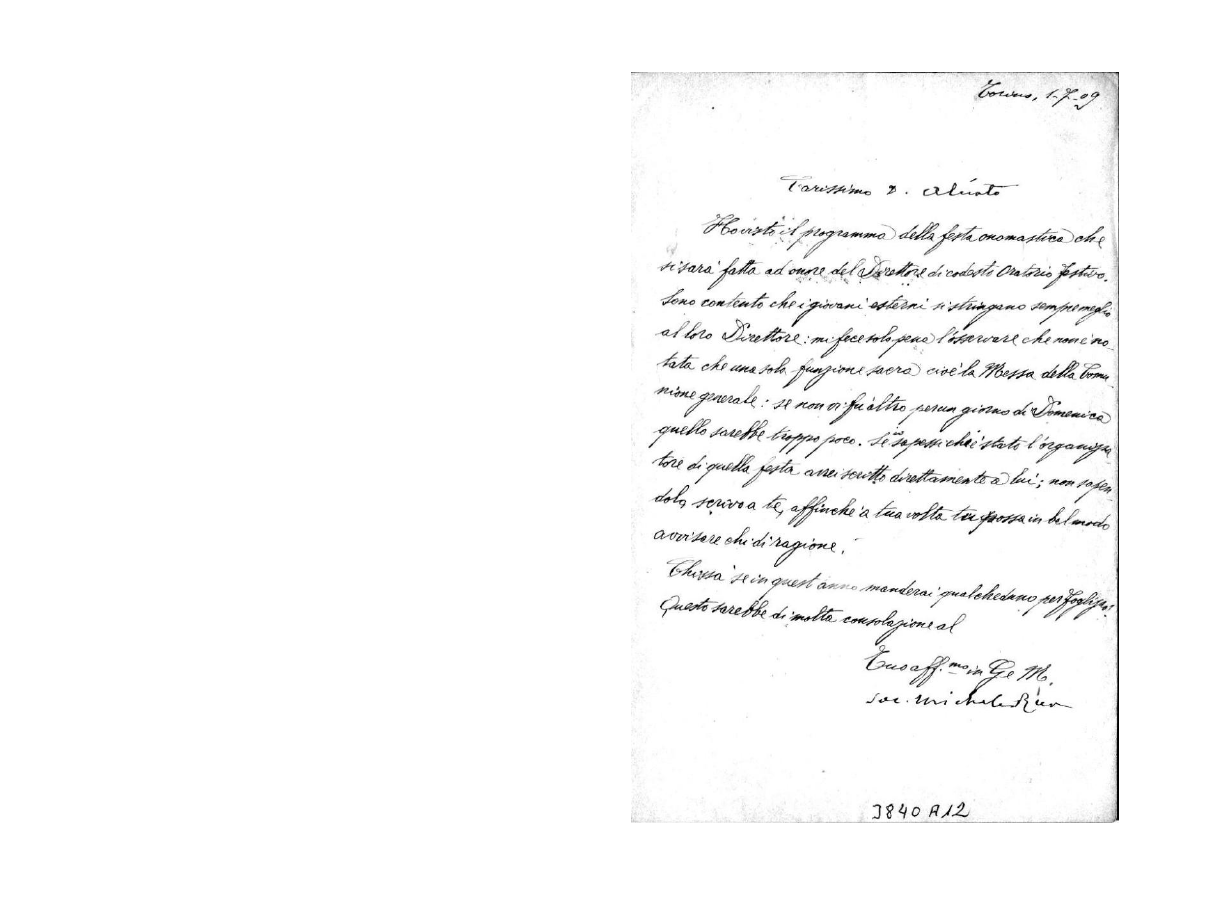 Torino, 1-7-09
Carissimo D. Aliuto
Ho visto il programma della festa onomastica che
si sarà fatta ad onore del Direttore di codesto Oratorio festivo.
Sono contento che i giovani esterni si stringano sempre meglio
al loro Direttore: mi fece solo pena l'osservare che non è no-
tata che una sola funzione sacra cioè la Messa della Comu-
nione generale: se non vi fu altro per un giorno di Domenica
quello sarebbe troppo poco. Se sapessi chi è stato l'organizza-
tore di quella festa avrei scritto direttamente a lui; non sapen-
dolo, scrivo a te, affinchè a tua volta tu possa in bel modo
avvisare chi di ragione.
Chissà se in quest'anno manderai qualcheduno per Foglizzo?
Questo sarebbe di molta consolazione al
Tuo aff.mo in G e M.
Sac. Michele Rua
3840 A12